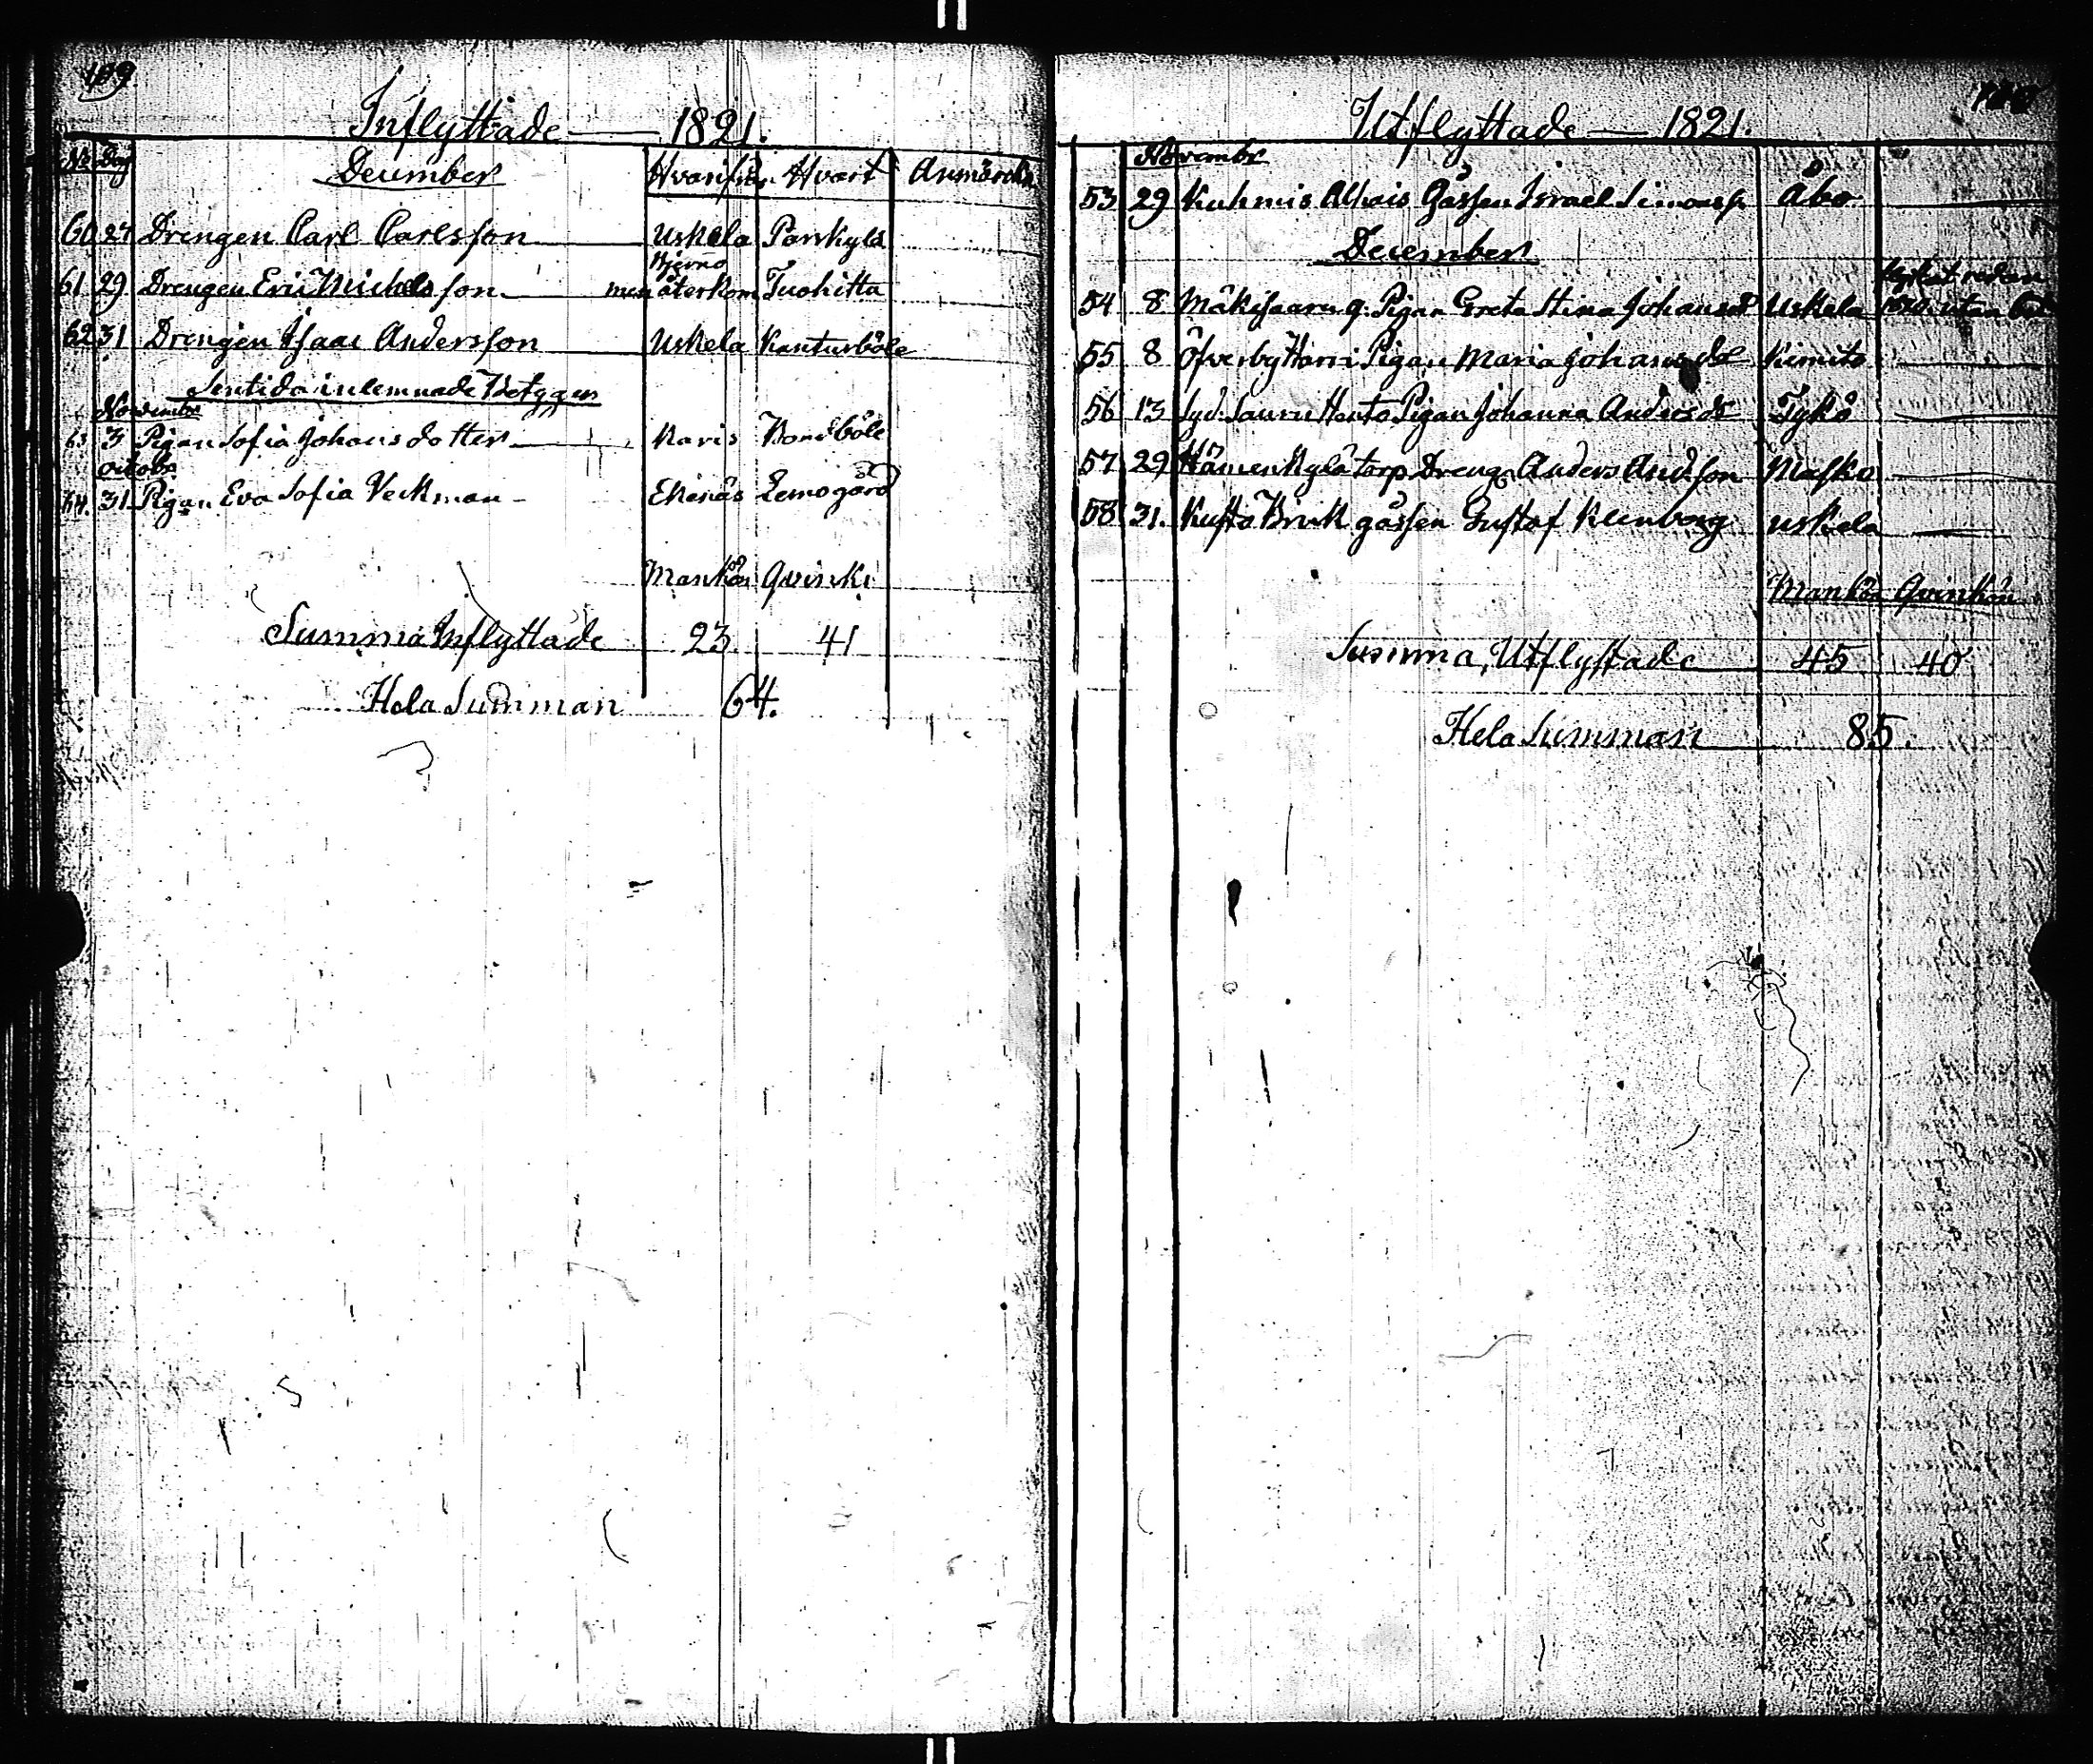 109.
Inflyttade — 1821.
No Dag December Hvarifrån Hvart Anmärckn
60 27 Drengen Carl Carlsson Uskela Pankyla
Bjerno
61 29 Drengen Eric Michelsson men återkom Tuohitta
62 31 Drengen Isaac Andersson Uskela Kanturböle
Sentida inlemnade Betyggen
November
63 3 Pigan Sofia Johansdotter Karis Bondböle
Octobr
64. 31 Pigan Eva Sofia Veckman Ekenäs Lemogård
Mankön Qvinkö
Summa Inflyttade 23 41
Hela Summan 64.
Utflyttade — 1821.
Novembr
53 29 Kuhmis Gåssen Israel Simonss. Åbo
December
redan
54 8 Mäkisaaru g. Pigan Greta Stina Johansd Uskela utan bet
55 8 Öfverby Harri Pigan Maria Johansd Kimito
56 13 Lyd. Sauru Pigan Johanna Andersdr Tykö
57 29 Hämenkylä torp Dreng Anders Andsson Masko
58 31. Kusto Bruk gåssen Gustaf Klenberg Uskela
Mankön Qvinkön
Summa, Utflyttade 45 40
Hela Summan 85.